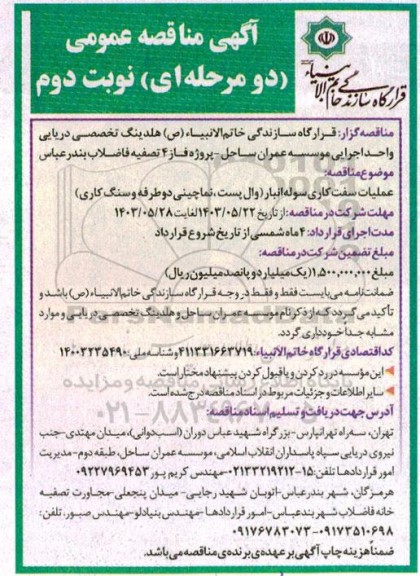 آگهی مناقصه عمومی
(دو مرحله‌ای) نوبت دوم
قرارگاه سازندگی خاتم الانبیاء
مناقصه‌گزار: قرارگاه سازندگی خاتم‌الانبیاء (ص) هلدینگ تخصصی دریایی
واحد اجرایی موسسه عمران ساحل - پروژه فاز ۴ تصفیه فاضلاب بندرعباس
موضوع مناقصه:
عملیات سفت کاری سوله انبار (وال پست، نماچینی دو طرفه و سنگ کاری)
مهلت شرکت در مناقصه: از تاریخ ۱۴۰۳/۰۵/۲۲ لغایت ۱۴۰۳/۰۵/۲۸
مدت اجرای قرارداد: ۴ ماه شمسی از تاریخ شروع قرارداد
مبلغ تضمین شرکت در مناقصه:
مبلغ ۱,۵۰۰,۰۰۰,۰۰۰ (یک میلیارد و پانصد میلیون ریال)
ضمانت‌نامه می‌بایست فقط و فقط در وجه قرارگاه سازندگی خاتم‌الانبیاء (ص) باشد و
تأکید می‌گردد که از ذکر نام موسسه عمران ساحل و هلدینگ تخصصی دریایی و موارد
مشابه جداً خودداری گردد.
کد اقتصادی قرارگاه خاتم‌الانبیاء: ۴۱۱۳۳۱۶۶۳۷۱۹ و شناسه ملی: ۱۴۰۰۳۲۳۵۴۹۰
این مؤسسه در رد کردن و یا قبول کردن پیشنهاد مختار است.
سایر اطلاعات و جزئیات مربوط در اسناد مناقصه درج شده است.
۰۲۱-۸۸۳۴۹۶۷۰
آدرس جهت دریافت و تسلیم اسناد مناقصه:
تهران، سه‌راه تهرانپارس-بزرگراه شهید عباس دوران (اسب‌دوانی)، میدان مهتدی-جنب
نیروی دریایی سپاه پاسداران انقلاب اسلامی، موسسه عمران ساحل، طبقه دوم-مدیریت
امور قراردادها تلفن: ۱۵-۰۲۱۳۳۲۱۹۲۱۲-مهندس کریم پور ۰۹۲۲۷۹۶۹۴۵۳
هرمزگان، شهر بندرعباس-اتوبان شهید رجایی- میدان پنجعلی-مجاورت تصفیه
خانه فاضلاب شهر بندرعباس-امور قراردادها -مهندس بنیادلو-مهندس صبور. تلفن:
۰۹۱۷۳۵۱۰۶۹۸-۰۹۱۷۶۷۸۳۰۷۳
ضمناً هزینه چاپ آگهی بر عهده‌ی برنده‌ی مناقصه می‌باشد.